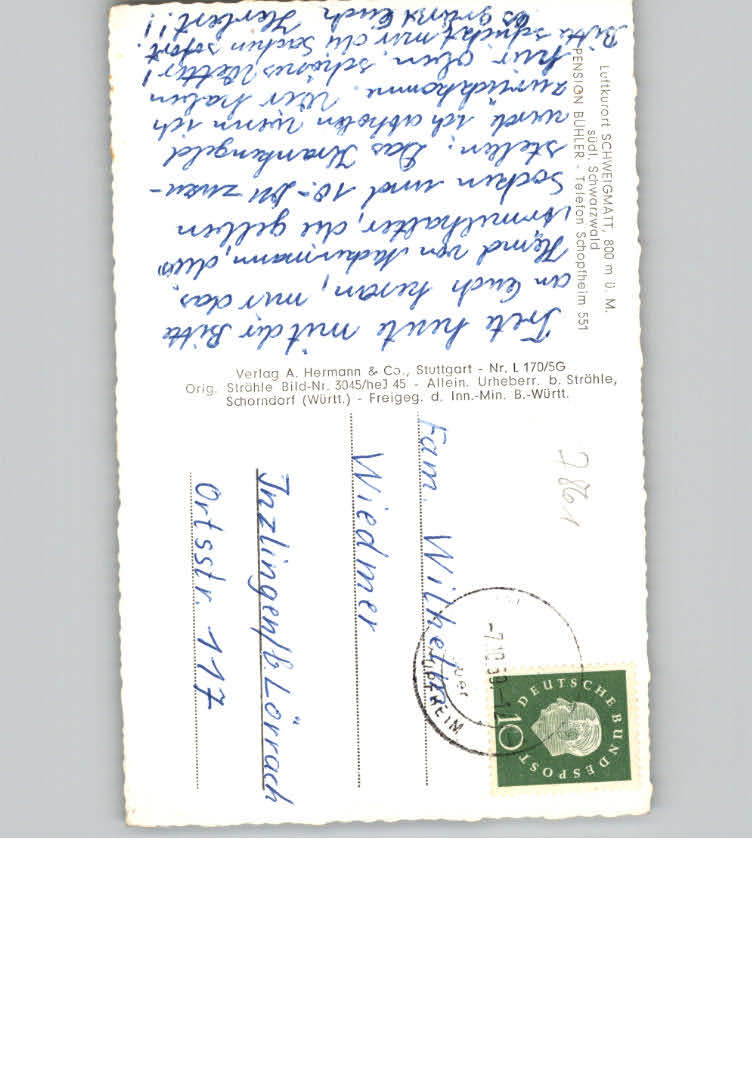 Luftkurort SCHWEIGMATT, 800 m ü. M.
südl. Schwarzwald
PENSION BÜHLER - Telefon Schopfheim 551
Trete heute mit der Bitte
an Euch heran, mir das
Hemd von Neckermann, die
Ärmelhalter, die gelben
Socken und 10.- DM zuzu-
stellen. Das Krankengeld
werde ich abholen wenn ich
zurückkomme. Wir haben
hier oben schönes Wetter!
Bitte schickt mir die Sachen sofort.
Es grüsst Euch Herbert!!
Verlag A. Hermann & Co., Stuttgart - Nr. L 170/5G
Orig. Strähle Bild-Nr. 3045/heJ 45 - Allein. Urheberr. b. Strähle,
Schorndorf (Württ.) - Freigeg. d. Inn.-Min. B.-Württ.
7861
Fam. Wilhelm
Wiedmer
Inzlingen/b Lörrach
Ortsstr. 117
DEUTSCHE BUNDESPOST
10
über
-7.10.59-